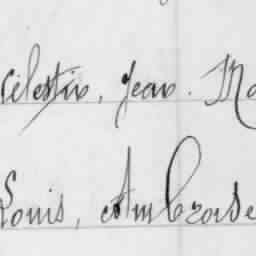 Célestin, Jean. Ma
Louis, Ambroise